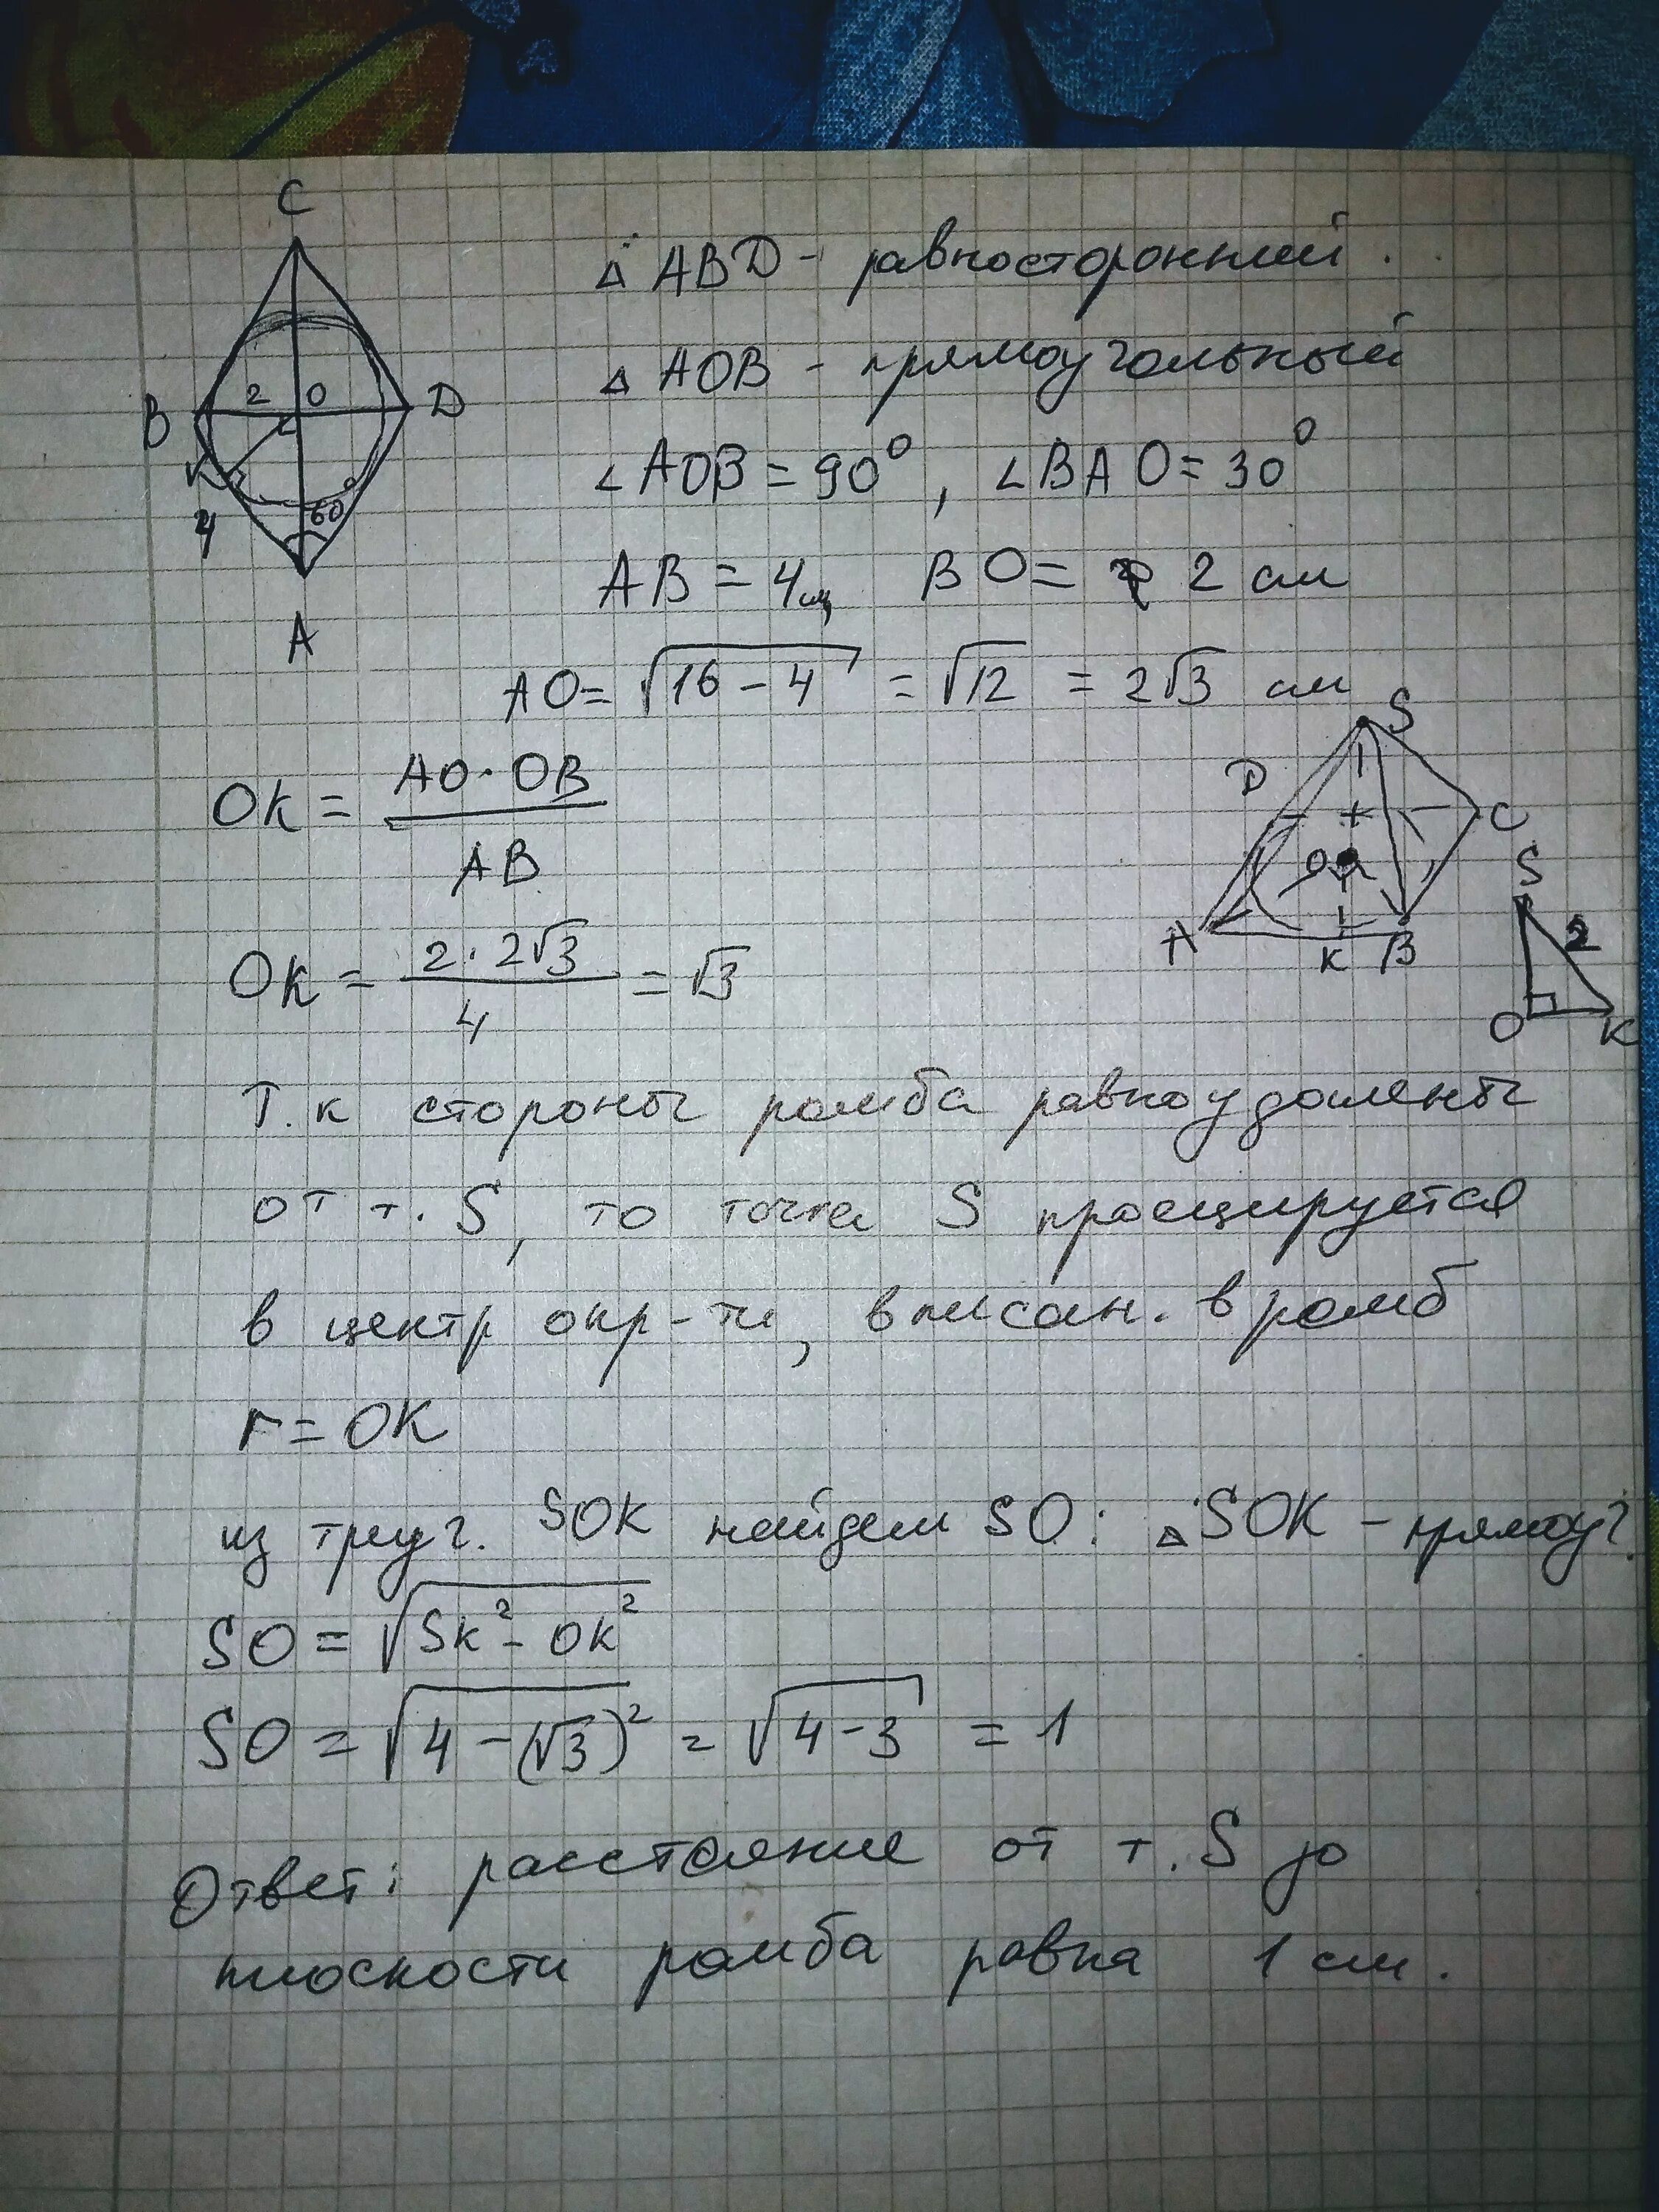 C
Δ ABD - равносторонний.
Δ AOB - прямоугольный
B 2 O D
K
4
60°
A
∠AOB = 90°, ∠BAO = 30°
AB = 4см BO = 2 см
AO = √16 - 4 = √12 = 2√3 см
OK = AO · OB / AB
S
D C
O
A K B
S
2
O K
OK = 2 · 2√3 / 4 = √3
Т.к стороны ромба равноудалены
от т. S, то точка S проецируется
в центр окр-ти, вписан. в ромб
r = OK
из треуг. SOK найдем SO: Δ SOK - прямоуг.
SO = √SK² - OK²
SO = √4 - (√3)² = √4 - 3 = 1
Ответ: расстояние от т. S до
плоскости ромба равна 1 см.